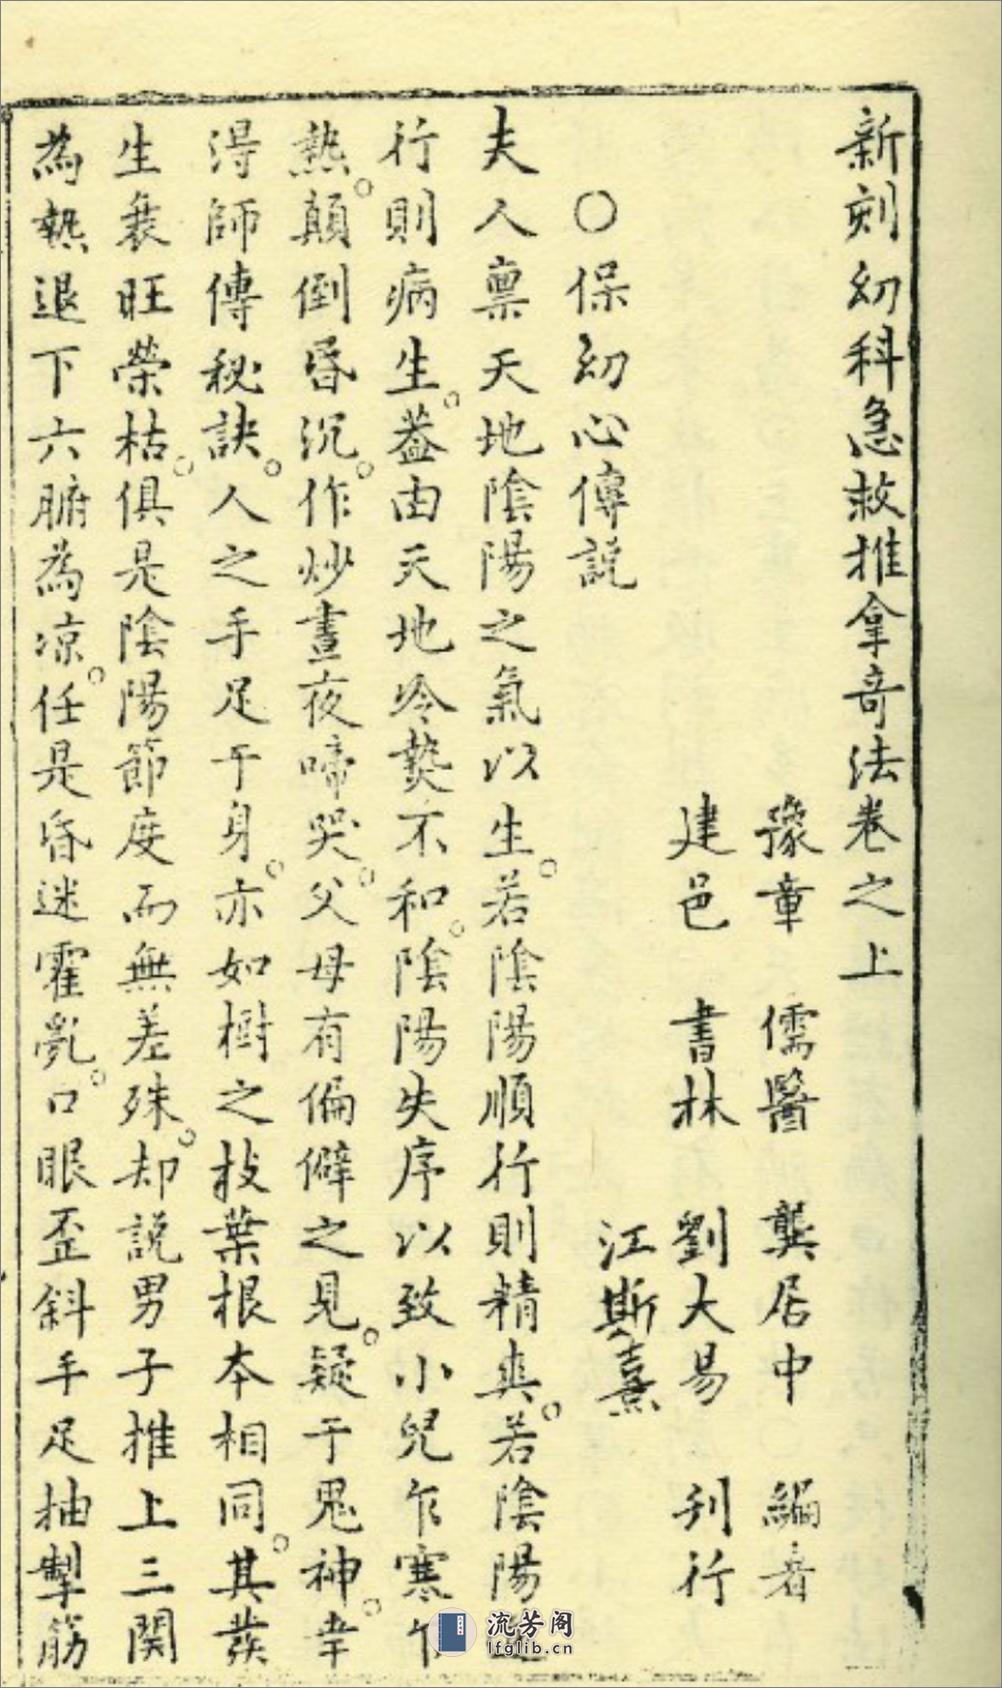 新刻幼科急救推拿奇法卷之上
豫章 儒醫 龔居中 編著
建邑 書林 劉大易 刋行
江斯熹
〇保幼心傳説
夫人禀天地陰陽之氣以生。若陰陽順行則精爽。若陰陽
行則病生。葢由天地冷熱不和。陰陽失序以致小兒乍寒乍
熱。顛倒昏沉。作炒晝夜啼哭。父母有偏僻之見。疑于鬼神。幸
得師傳秘訣。人之手足于身。亦如樹之枝葉根本相同。其發
生衰旺榮枯。俱是陰陽節度而無差殊。却説男子推上三関
為熱退下六腑為凉。任是昏迷霍亂。口眼歪斜手足抽掣筋
流芳阁
lfglib.cn